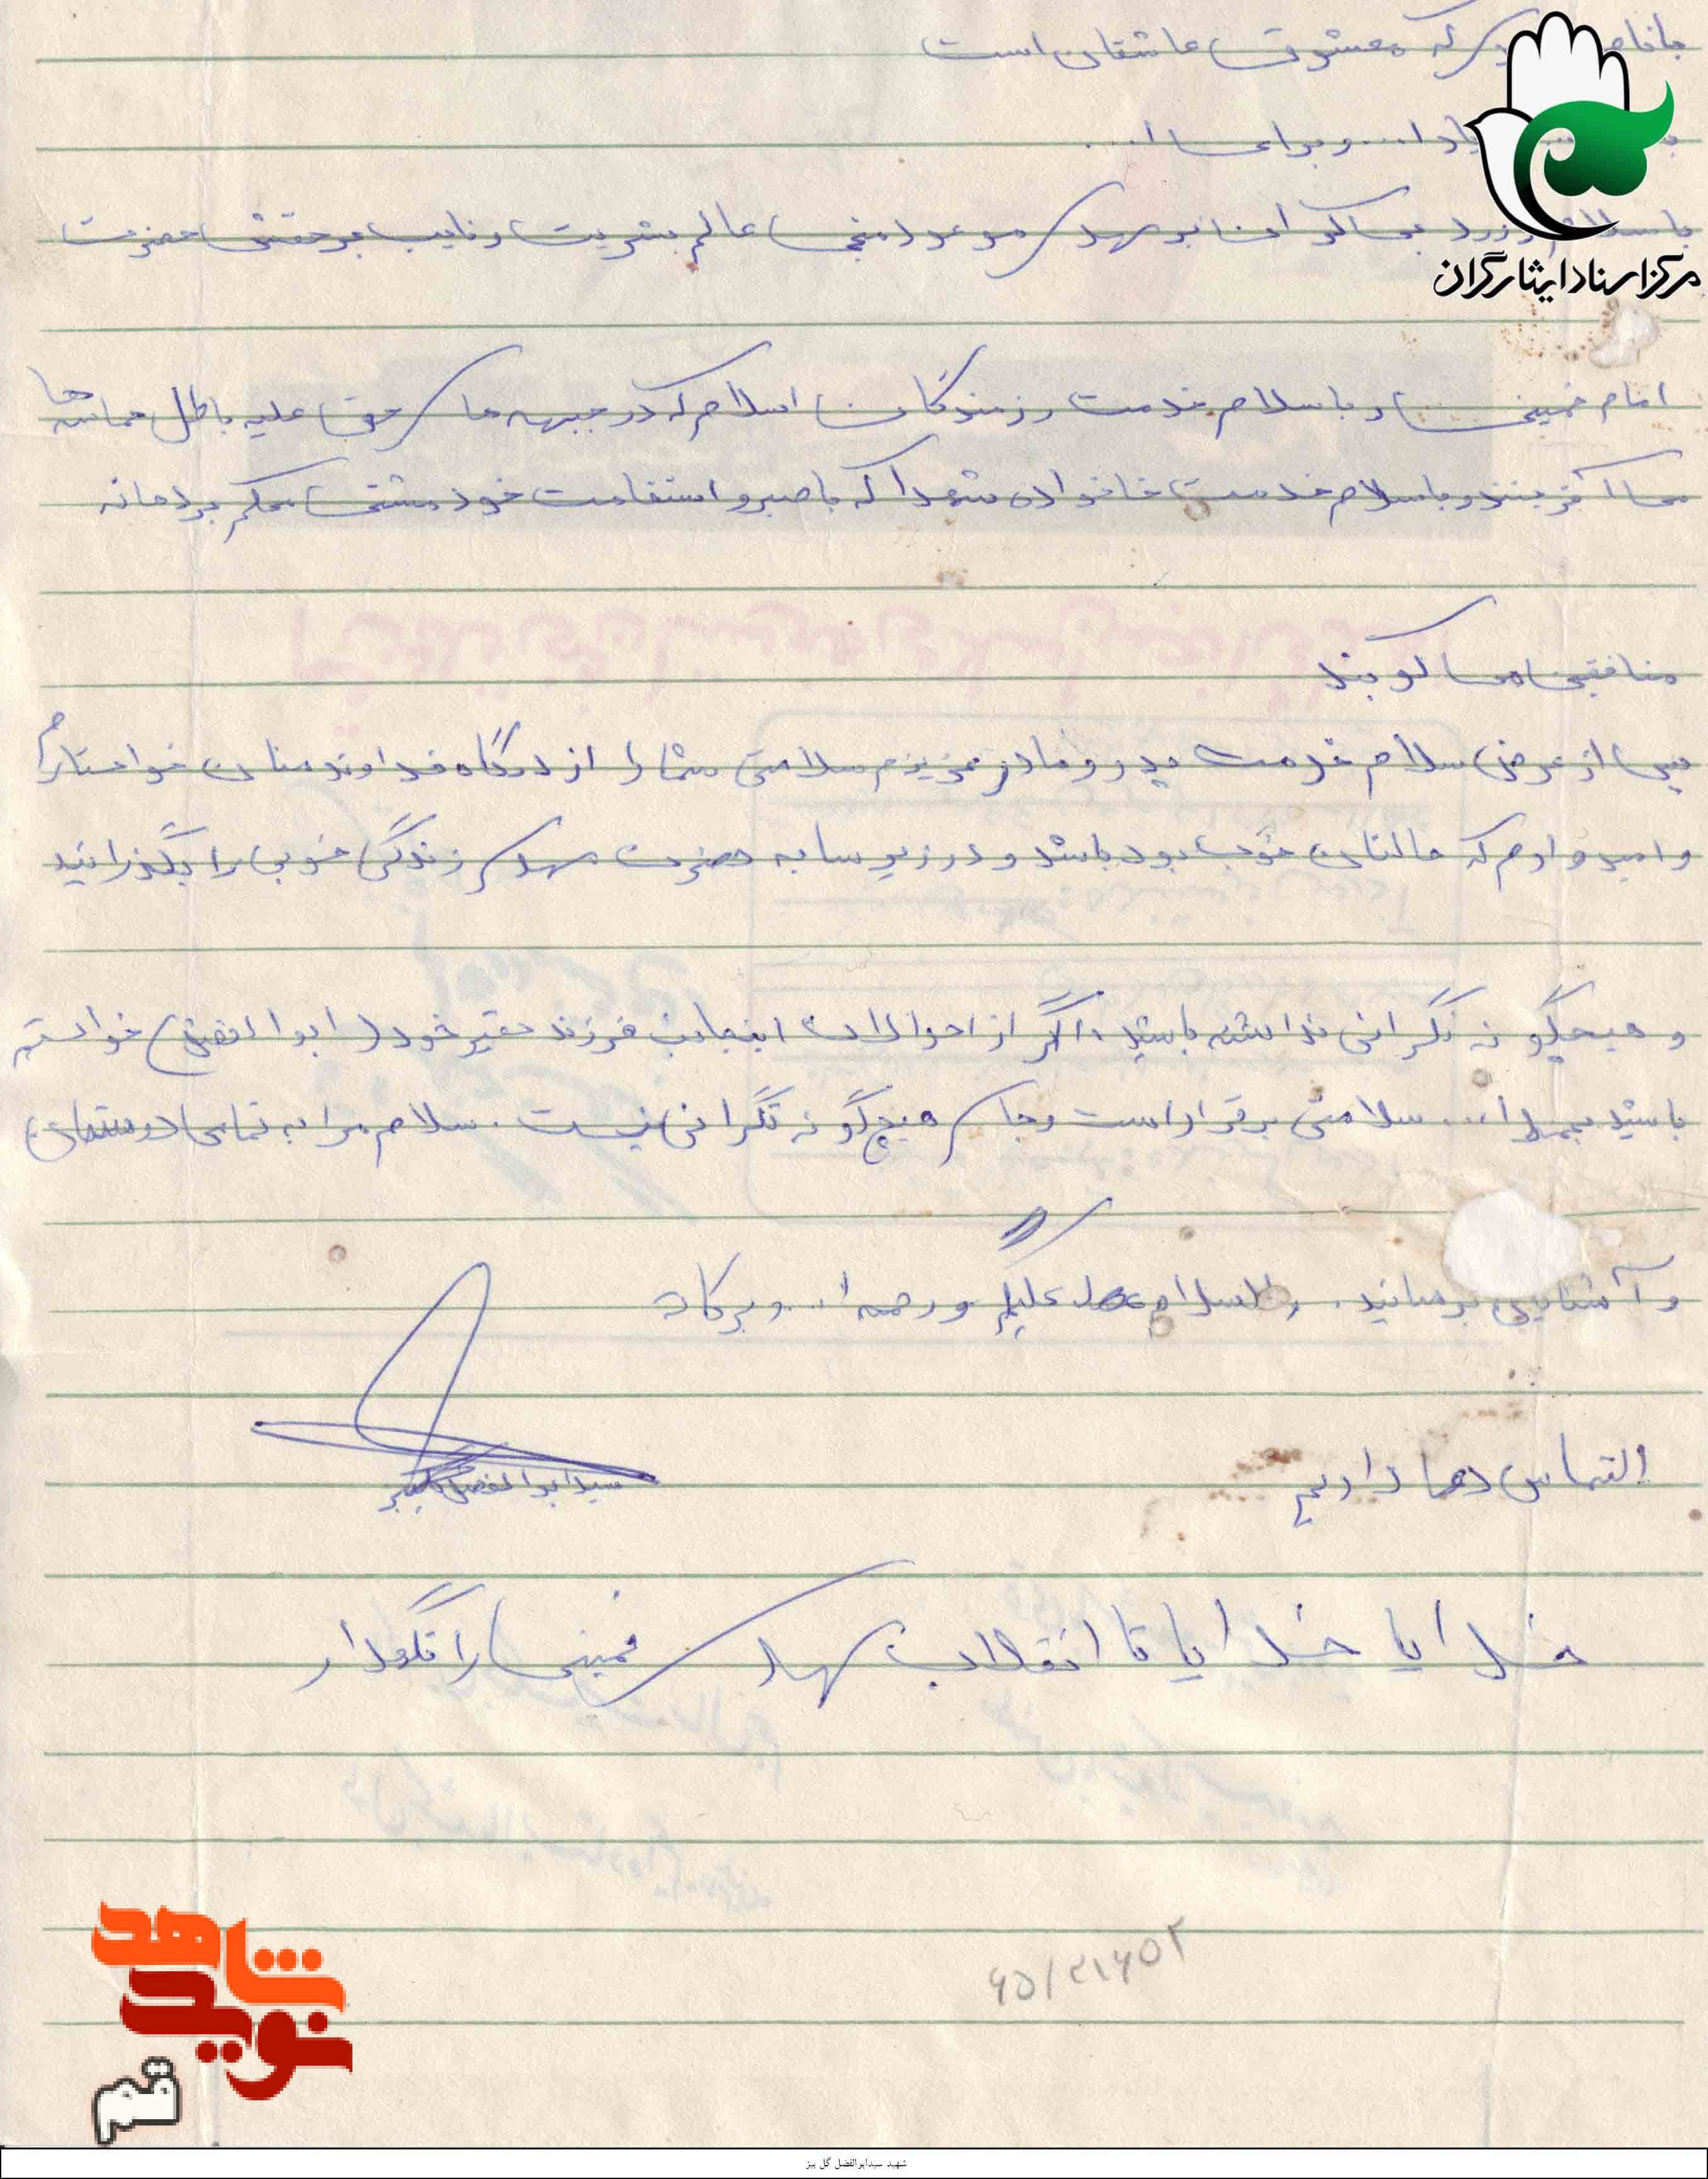 که معشوق عاشقان است
یاد ا... و برای ا...
با سلام و درود بی کران بر مهدی موعود منجی عالم بشریت و نایب برحقش حضرت
امام خمینی و با سلام خدمت رزمندگان اسلام که در جبهه های حق علیه باطل حماسه ها
می آفرینند و با سلام خدمت خانواده شهدا که با صبر و استقامت خود مشتی محکم بر دهان
منافقین می کوبند
پس از عرض سلام خدمت پدر و مادر عزیزم سلامتی شما را از درگاه خداوند منان خواستارم
و امیدوارم که حالتان خوب بود باشد و در زیر سایه حضرت مهدی زندگی خوبی را بگذرانید
و هیچگونه نگرانی نداشته باشید، اگر از احوالات اینجانب فرزند حقیر خود (ابوالفضل) خواسته
باشید بحمدا... سلامتی برقرار است و جای هیچ گونه نگرانی نیست. سلام مرا به تمامی دوستان
و آشنایی برسانید. والسلام علیکم و رحمه ا.. و برکاته
التماس دعا داریم
سید ابوالفضل گلبیز
خدایا خدایا تا انقلاب مهدی خمینی را نگهدار
۶۵/۲۱۶۵۲
مرکز اسناد ایثارگران
نوید شاهد
قم
شهید سیدابوالفضل گل بیز